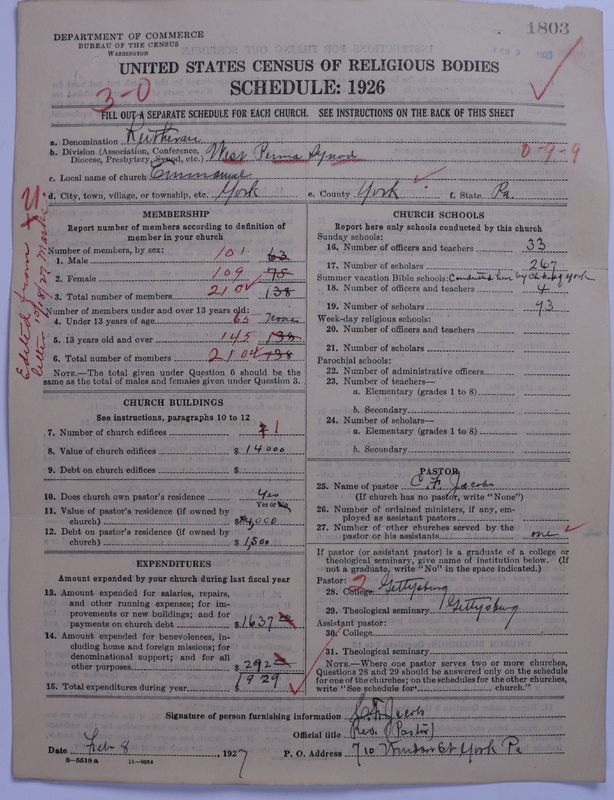 1803
DEPARTMENT OF COMMERCE
BUREAU OF THE CENSUS
WASHINGTON
UNITED STATES CENSUS OF RELIGIOUS BODIES
SCHEDULE: 1926
3-0
FILL OUT A SEPARATE SCHEDULE FOR EACH CHURCH. SEE INSTRUCTIONS ON THE BACK OF THIS SHEET
a. Denomination Lutheran
b. Division (Association, Conference, Diocese, Presbytery, Synod, etc.) West Penna Synod 0-9-9
c. Local name of church Emmanuel
d. City, town, village, or township, etc. York e. County York f. State Pa.
Edited from letter 10/8/27
MEMBERSHIP
Report number of members according to definition of
member in your church
Number of members, by sex:
1. Male 101 63
2. Female 109 75
3. Total number of members 210 138
Number of members under and over 13 years old:
4. Under 13 years of age 65 None
5. 13 years old and over 145 138
6. Total number of members 210 138
NOTE.—The total given under Question 6 should be the
same as the total of males and females given under Question 3.
CHURCH BUILDINGS
See instructions, paragraphs 10 to 12
7. Number of church edifices 1
8. Value of church edifices $ 14000
9. Debt on church edifices $
10. Does church own pastor's residence Yes
Yes or No
11. Value of pastor's residence (if owned by
church) $ 4,000
12. Debt on pastor's residence (if owned by
church) $ 1,500
EXPENDITURES
Amount expended by your church during last fiscal year
13. Amount expended for salaries, repairs,
and other running expenses; for im-
provements or new buildings; and for
payments on church debt $ 1637
14. Amount expended for benevolences, in-
cluding home and foreign missions; for
denominational support; and for all
other purposes $ 292
15. Total expenditures during year $ 1929
CHURCH SCHOOLS
Report here only schools conducted by this church
Sunday schools:
16. Number of officers and teachers 33
17. Number of scholars 267
Summer vacation Bible schools: Conducted by Chs of York
18. Number of officers and teachers 4
19. Number of scholars 93
Week-day religious schools:
20. Number of officers and teachers
21. Number of scholars
Parochial schools:
22. Number of administrative officers
23. Number of teachers—
a. Elementary (grades 1 to 8)
b. Secondary
24. Number of scholars—
a. Elementary (grades 1 to 8)
b. Secondary
PASTOR
25. Name of pastor C F Jacobs
(If church has no pastor, write "None")
26. Number of ordained ministers, if any, em-
ployed as assistant pastors
27. Number of other churches served by the
pastor or his assistants one
If pastor (or assistant pastor) is a graduate of a college or
theological seminary, give name of institution below. (If
not a graduate, write "No" in the space indicated.)
Pastor: 2
28. College Gettysburg
29. Theological seminary Gettysburg
Assistant pastor:
30. College
31. Theological seminary
NOTE.—Where one pastor serves two or more churches,
Questions 28 and 29 should be answered only on the schedule
for one of the churches; on the schedules for the other churches,
write "See schedule for church."
Signature of person furnishing information Jacobs
Official title Rev. (Pastor)
Date Feb 8, 1927 P. O. Address 710 Windsor St York Pa
8-5518 a 11-9054